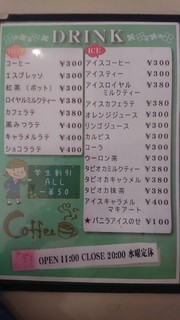 DRINK
HOT
コーヒー ¥300
エスプレッソ ¥300
紅茶 (ポット) ¥300
ロイヤルミルクティー ¥350
カフェラテ ¥350
黒みつラテ ¥400
キャラメルラテ ¥400
ショコララテ ¥400
学生割引
ALL
ー¥50
Coffee
ICE
アイスコーヒー ¥300
アイスティー ¥300
アイスロイヤル
ミルクティー ¥380
アイスカフェラテ ¥380
オレンジジュース ¥300
リンゴジュース ¥300
カルピス ¥300
コーラ ¥300
ウーロン茶 ¥300
タピオカミルクティー ¥380
タピオカカフェラテ ¥380
タピオカキャラメル ¥380
タピオカ抹茶 ¥380
アイスキャラメル
マキアート ¥400
★バニラアイスのせ ¥100
OPEN 11:00 CLOSE 20:00 水曜定休